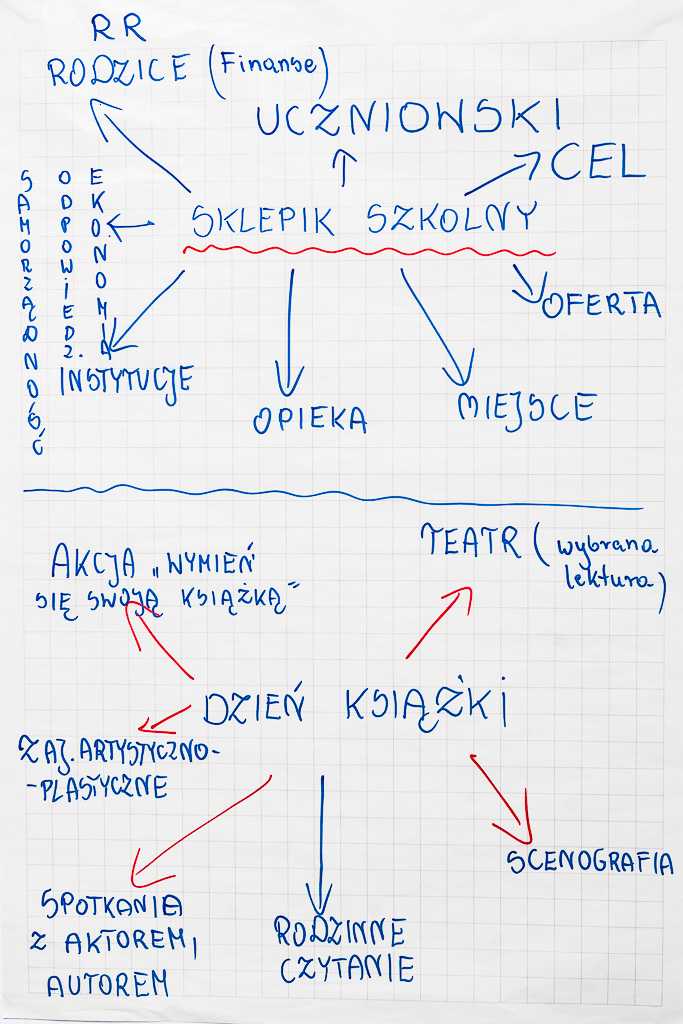 RR
RODZICE (Finanse)
UCZNIOWSKI
CEL
SKLEPIK SZKOLNY
SAMORZĄDNOŚĆ
ODPOWIEDZ.
EKONOMIA
OFERTA
INSTYTUCJE
OPIEKA
MIEJSCE
TEATR (wybrana
lektura)
AKCJA „WYMIEŃ
SIĘ SWOJĄ KSIĄŻKĄ”
DZIEŃ KSIĄŻKI
ZAJ. ARTYSTYCZNO-
-PLASTYCZNE
SCENOGRAFIA
SPOTKANIA
Z AKTOREM,
AUTOREM
RODZINNE
CZYTANIE